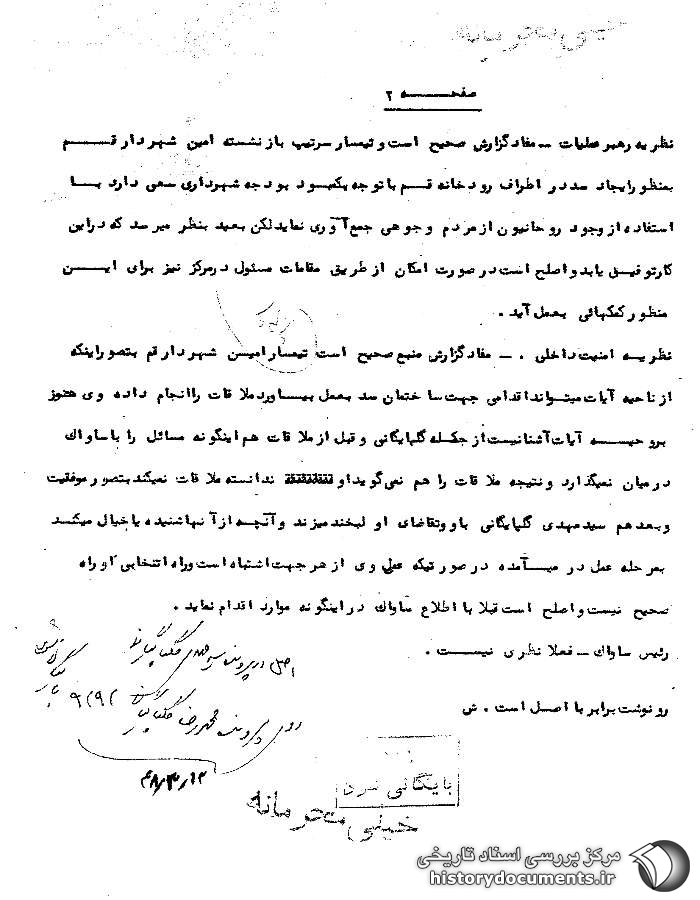 صفحــــه ۲
نظریه رهبر عملیات – مفاد گزارش صحیح است و تیمسار سرتیپ بازنشسته امین شهردار قـــم
بمنظور ایجاد سد در اطراف رودخانه قم با توجه بکمبود بودجه شهرداری سعی دارد بـــا
استفاده از وجود روحانیون از مردم وجوهی جمع‌آوری نماید لکن بعید بنظر میرسد که در این
کار توفیق یابد و اصلح است در صورت امکان از طریق مقامات مسئول در مرکز نیز برای ایـــن
منظور کمکهائی بعمل آید .
نظریــه امنیت داخلی . – مفاد گزارش منبع صحیح است تیمسار امیـن شهردار قم بتصور اینکه
از ناحیه آیات میتواند اقدامی جهت ساختمان سد بعمل بیاورد ملاقات را انجام داده وی هنوز
بروحیــه آیات آشنا نیست از جمله گلپایگانی و قبل از ملاقات هم اینگونه مسائل را با ساواک
در میان نمیگذارد و نتیجه ملاقات را هم نمی‌گوید او ندانسته ملاقات نمیکند بتصور موفقیت
و بعد هم سید مهدی گلپایگانی باو و تقاضای او لبخند میزند و آنچه از آنها شنیده یا خیال میکند
بمرحله عمل در میــآمده در صورتیکه عمل وی از هر جهت اشتباه است و راه انتخابی او راه
صحیح نیست و اصلح است قبلا با اطلاع ساواک در اینگونه موارد اقدام نماید .
رئیس ساواک – فعلا نظری نیســت .
رونوشت برابر با اصل است . ش
اصل در پرونده سید مهدی گلپایگانی
روی در پرونده محمدرضا گلپایگانی
۴۸/۳/۱۲
بایگانی شد
خیلی محرمانه
مرکز بررسی اسناد تاریخی
historydocuments.ir